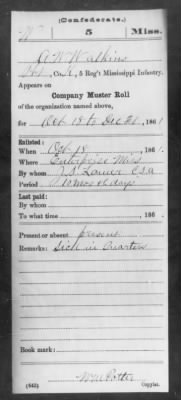 (Confederate.)
W 5 Miss.
A W Watkins
Pvt, Co. A, 5 Reg't Mississippi Infantry.
Appears on
Company Muster Roll
of the organization named above,
for Oct 18 to Dec 31, 1861
Enlisted:
When Oct 18, 1861.
Where Enterprise Miss
By whom J. S. Lanier C.S.A
Period 10 mos
Last paid:
By whom
To what time , 186 .
Present or absent present
Remarks: Sick in Quarters
Book mark:
(642) Wm Potter
Copyist.